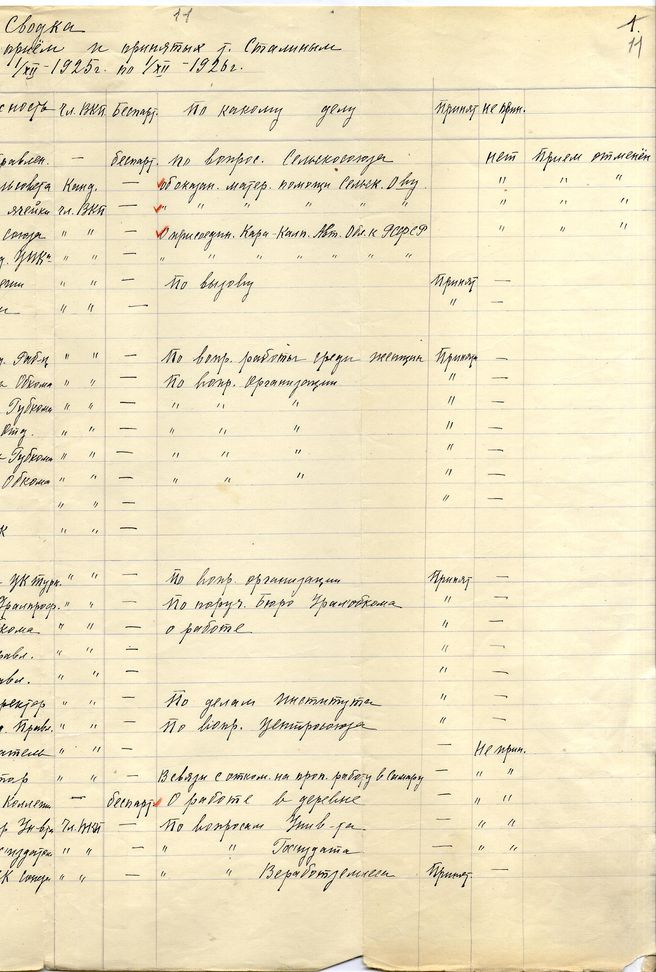 11
1.
11
Сводка
приём и принятых т. Сталиным
1/XII-1925г. по 1/XII-1926г.
ность Чл. ВКП Беспарт. По какому делу Принят Не прин.
равлен. — беспарт. По вопрос. Сельскосоюза нет Прием отменён
льсовета Канд. — об оказан. матер. помощи Сельск. О-ву. " " "
ячейки Чл. ВКП — " " " " " " " " "
союза " " — О присоедин. Кара-Калп. Авт. Обл. к РСФСР " " "
" " — " " " " " " "
" " — По вызову Принят —
" " — " —
" " — По вопр. работы среди женщин Принят —
Обкома " " — По вопр. Организации " —
Губкома " " — " " " " —
Отд. " " — " " " " —
Губкома " " — " " " " —
Обкома " " — " " " " —
" " — " —
К " " —
ЦК Турк. " " — По вопр. организации Принят —
Уралпроф. " " — По поруч. Бюро Уралобкома " —
кома " " — о работе " —
равл. " " — " —
вл. " " — " —
ректор " " — По делам Института " —
Правл. " " — По вопр. Центросоюза " —
атель " " — — Не прин.
тор " " — В связи с отком. на проп. работу в Самару — " "
Коллегии — беспарт. О работе в деревне — " "
р Ун-та Чл. ВКП — По вопросам Унив-та — " "
" " — " " Госиздата — " "
К Союза " " — " " Всеработземлеса Принят —